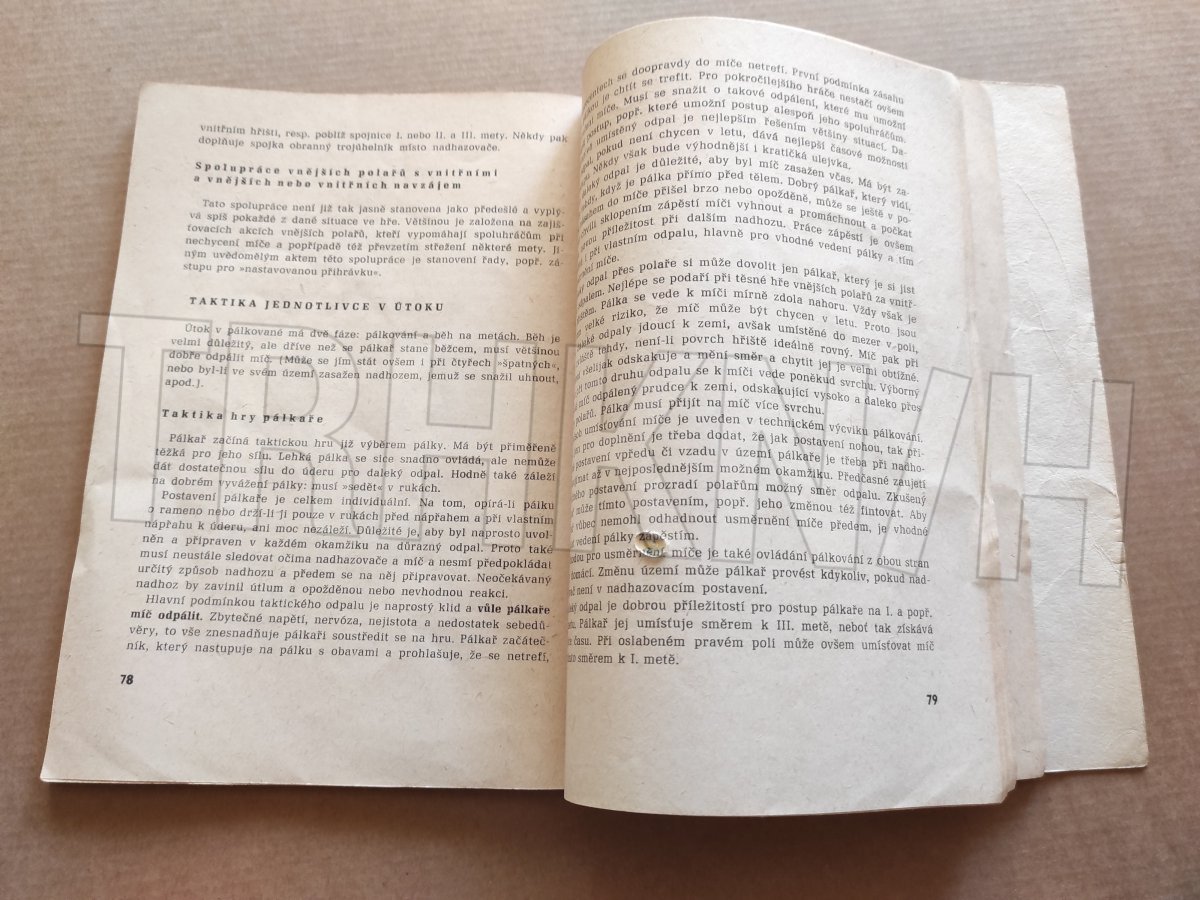 vnitřním hřišti, resp. poblíž spojnice I. nebo II. a III. mety. Někdy pak
doplňuje spojka obranný trojúhelník místo nadhazovače.
Spolupráce vnějších polařů s vnitřními
a vnějších nebo vnitřních navzájem
Tato spolupráce není již tak jasně stanovena jako předešlé a vyplý-
vá spíš pokaždé z dané situace ve hře. Většinou je založena na zajiš-
ťovacích akcích vnějších polařů, kteří vypomáhají spoluhráčům při
nechycení míče a popřípadě též převzetím střežení některé mety. Ji-
ným uvědomělým aktem této spolupráce je stanovení řady, popř. zá-
stupu pro »nastavovanou přihrávku«.
TAKTIKA JEDNOTLIVCE V ÚTOKU
Útok v pálkované má dvě fáze: pálkování a běh na metách. Běh je
velmi důležitý, ale dříve než se pálkař stane běžcem, musí většinou
dobře odpálit míč. (Může se jím stát ovšem i při čtyřech »špatných«,
nebo byl-li ve svém území zasažen nadhozem, jemuž se snažil uhnout,
apod.).
Taktika hry pálkaře
Pálkař začíná taktickou hru již výběrem pálky. Má být přiměřeně
těžká pro jeho sílu. Lehká pálka se sice snadno ovládá, ale nemůže
dát dostatečnou sílu do úderu pro daleký odpal. Hodně také záleží
na dobrém vyvážení pálky: musí »sedět« v rukách.
Postavení pálkaře je celkem individuální. Na tom, opírá-li pálku
o rameno nebo drží-li ji pouze v rukách před nápřahem a při vlastním
nápřahu k úderu, ani moc nezáleží. Důležité je, aby byl naprosto uvol-
něn a připraven v každém okamžiku na důrazný odpal. Proto také
musí neustále sledovat očima nadhazovače a míč a nesmí předpokládat
určitý způsob nadhozu a předem se na něj připravovat. Neočekávaný
nadhoz by zavinil útlum a opožděnou nebo nevhodnou reakci.
Hlavní podmínkou taktického odpalu je naprostý klid a vůle pálkaře
míč odpálit. Zbytečné napětí, nervóza, nejistota a nedostatek sebedů-
věry, to vše znesnadňuje pálkaři soustředit se na hru. Pálkař začáteč-
ník, který nastupuje na pálku s obavami a prohlašuje, že se netrefí,
78
se doopravdy do míče netrefí. První podmínka zásahu
je chtít se trefit. Pro pokročilejšího hráče nestačí ovšem
míče. Musí se snažit o takové odpálení, které mu umožní
postup, popř. které umožní postup alespoň jeho spoluhráčům.
umístěný odpal je nejlepším řešením většiny situací. Da-
pokud není chycen v letu, dává nejlepší časové možnosti
Někdy však bude výhodnější i kratičká ulejvka.
odpal je důležité, aby byl míč zasažen včas. Má být za-
když je pálka přímo před tělem. Dobrý pálkař, který vidí,
do míče přišel brzo nebo opožděně, může se ještě v po-
sklopením zápěstí míči vyhnout a promáchnout a počkat
příležitost při dalším nadhozu. Práce zápěstí je ovšem
i při vlastním odpalu, hlavně pro vhodné vedení pálky a tím
míče.
odpal přes polaře si může dovolit jen pálkař, který je si jist
Nejlépe se podaří při těsné hře vnějších polařů za vnitř-
Pálka se vede k míči mírně zdola nahoru. Vždy však je
velké riziko, že míč může být chycen v letu. Proto jsou
odpaly jdoucí k zemi, avšak umístěné do mezer v poli,
tehdy, není-li povrch hřiště ideálně rovný. Míč pak při
všelijak odskakuje a mění směr a chytit jej je velmi obtížné.
tomto druhu odpalu se k míči vede poněkud svrchu. Výborný
míč odpálený prudce k zemi, odskakující vysoko a daleko přes
polařů. Pálka musí přijít na míč více svrchu.
umísťování míče je uveden v technickém výcviku pálkování.
pro doplnění je třeba dodat, že jak postavení nohou, tak při-
postavení vpředu či vzadu v území pálkaře je třeba při nadho-
až v nejposlednějším možném okamžiku. Předčasné zaujetí
postavení prozradí polařům možný směr odpalu. Zkušený
může tímto postavením, popř. jeho změnou též fintovat. Aby
vůbec nemohl odhadnout usměrnění míče předem, je vhodné
vedení pálky zápěstím.
pro usměrnění míče je také ovládání pálkování z obou stran
domácí. Změnu území může pálkař provést kdykoliv, pokud nad-
není v nadhazovacím postavení.
odpal je dobrou příležitostí pro postup pálkaře na I. a popř.
Pálkař jej umísťuje směrem k III. metě, neboť tak získává
času. Při oslabeném pravém poli může ovšem umísťovat míč
směrem k I. metě.
79